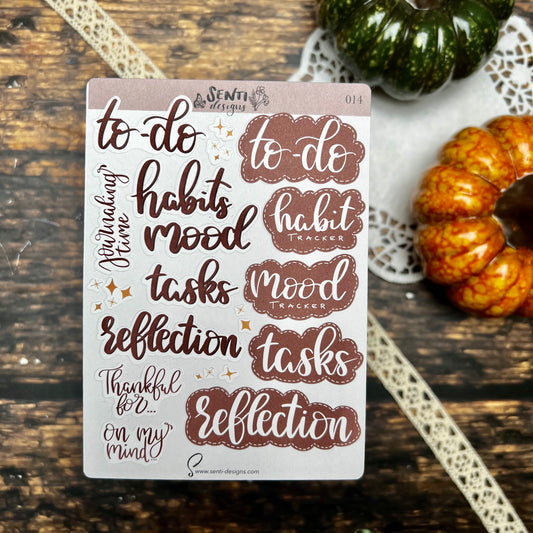 SENTI
designs
014
to-do
to-do
journaling
time
habits
mood
habit
TRACKER
tasks
mood
TRACKER
reflection
tasks
Thankful
for...
reflection
on my
mind...
www.senti-designs.com